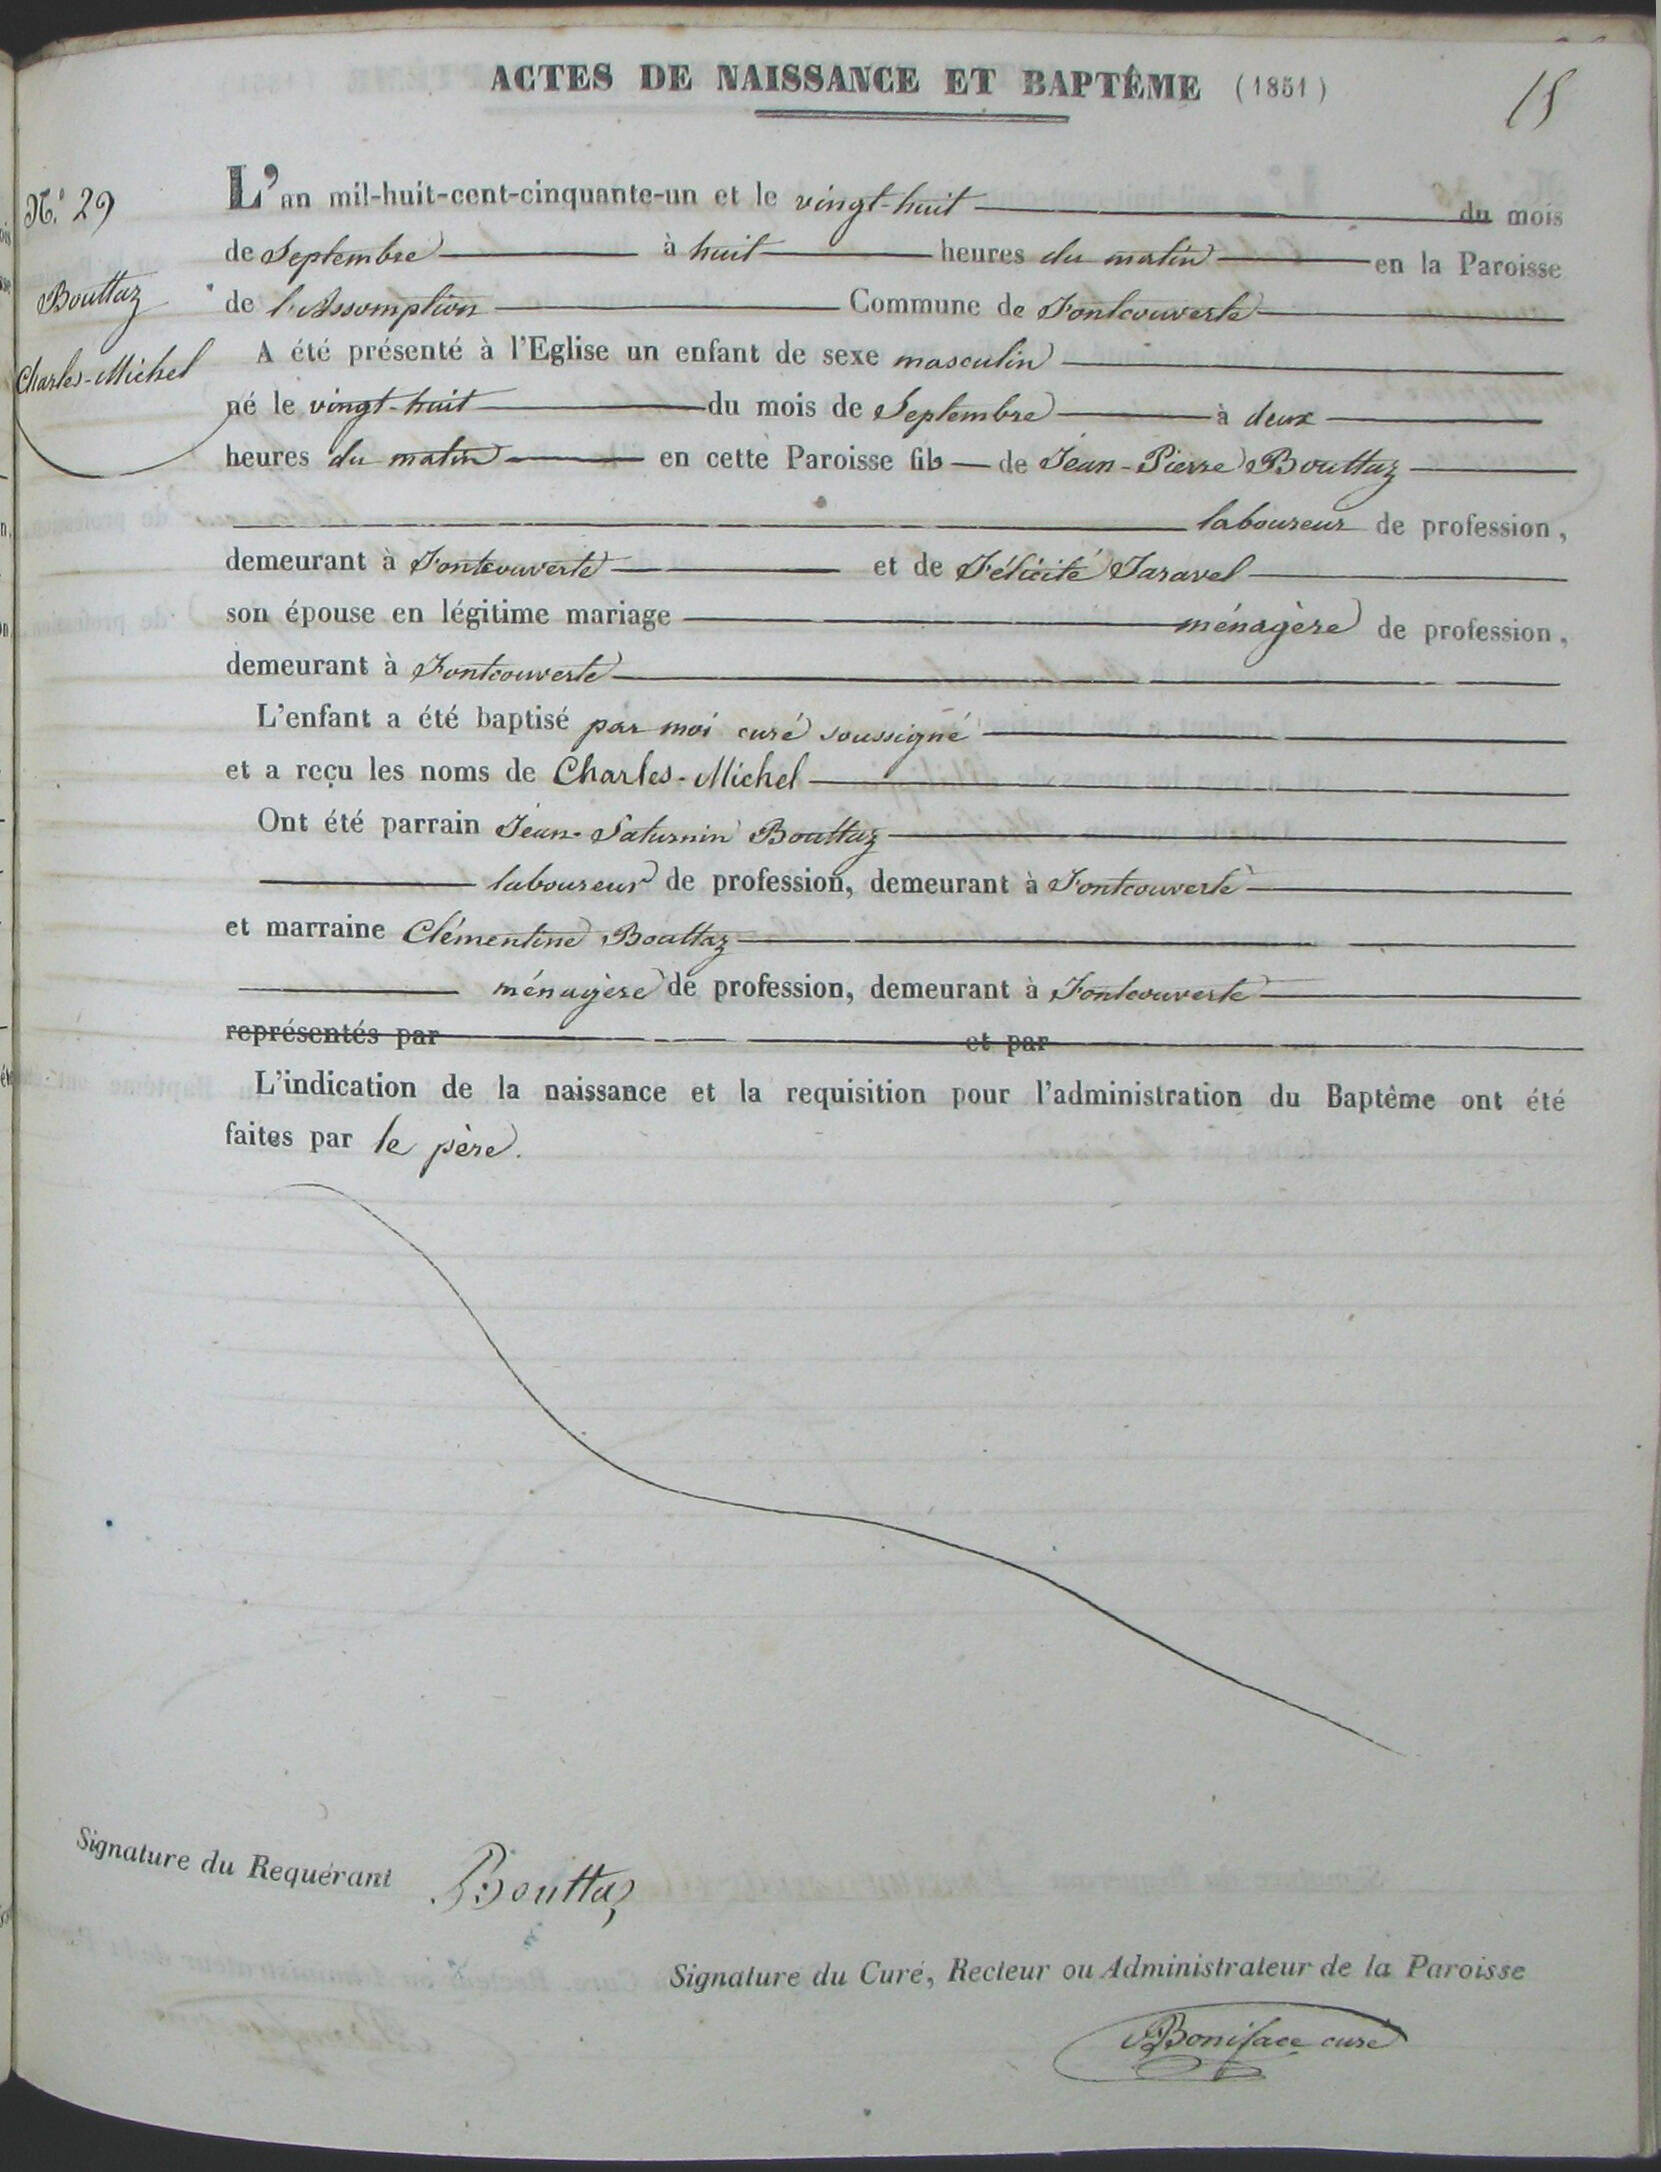 ACTES DE NAISSANCE ET BAPTÊME (1851)
15
N.° 29
Bouttaz
Charles-Michel
L'an mil-huit-cent-cinquante-un et le vingt-huit du mois
de Septembre à huit heures du matin en la Paroisse
de l'Assomption Commune de Fontcouverte
A été présenté à l'Eglise un enfant de sexe masculin
né le vingt-huit du mois de Septembre à deux
heures du matin en cette Paroisse fils de Jean-Pierre Bouttaz
laboureur de profession,
demeurant à Fontcouverte et de Félicité Taravel
son épouse en légitime mariage ménagère de profession,
demeurant à Fontcouverte
L'enfant a été baptisé par moi curé soussigné
et a reçu les noms de Charles-Michel
Ont été parrain Jean-Saturnin Bouttaz
laboureur de profession, demeurant à Fontcouverte
et marraine Clémentine Bouttaz
ménagère de profession, demeurant à Fontcouverte
représentés par et par
L'indication de la naissance et la requisition pour l'administration du Baptême ont été
faites par le père.
Signature du Requérant Bouttaz
Signature du Curé, Recteur ou Administrateur de la Paroisse
Boniface curé